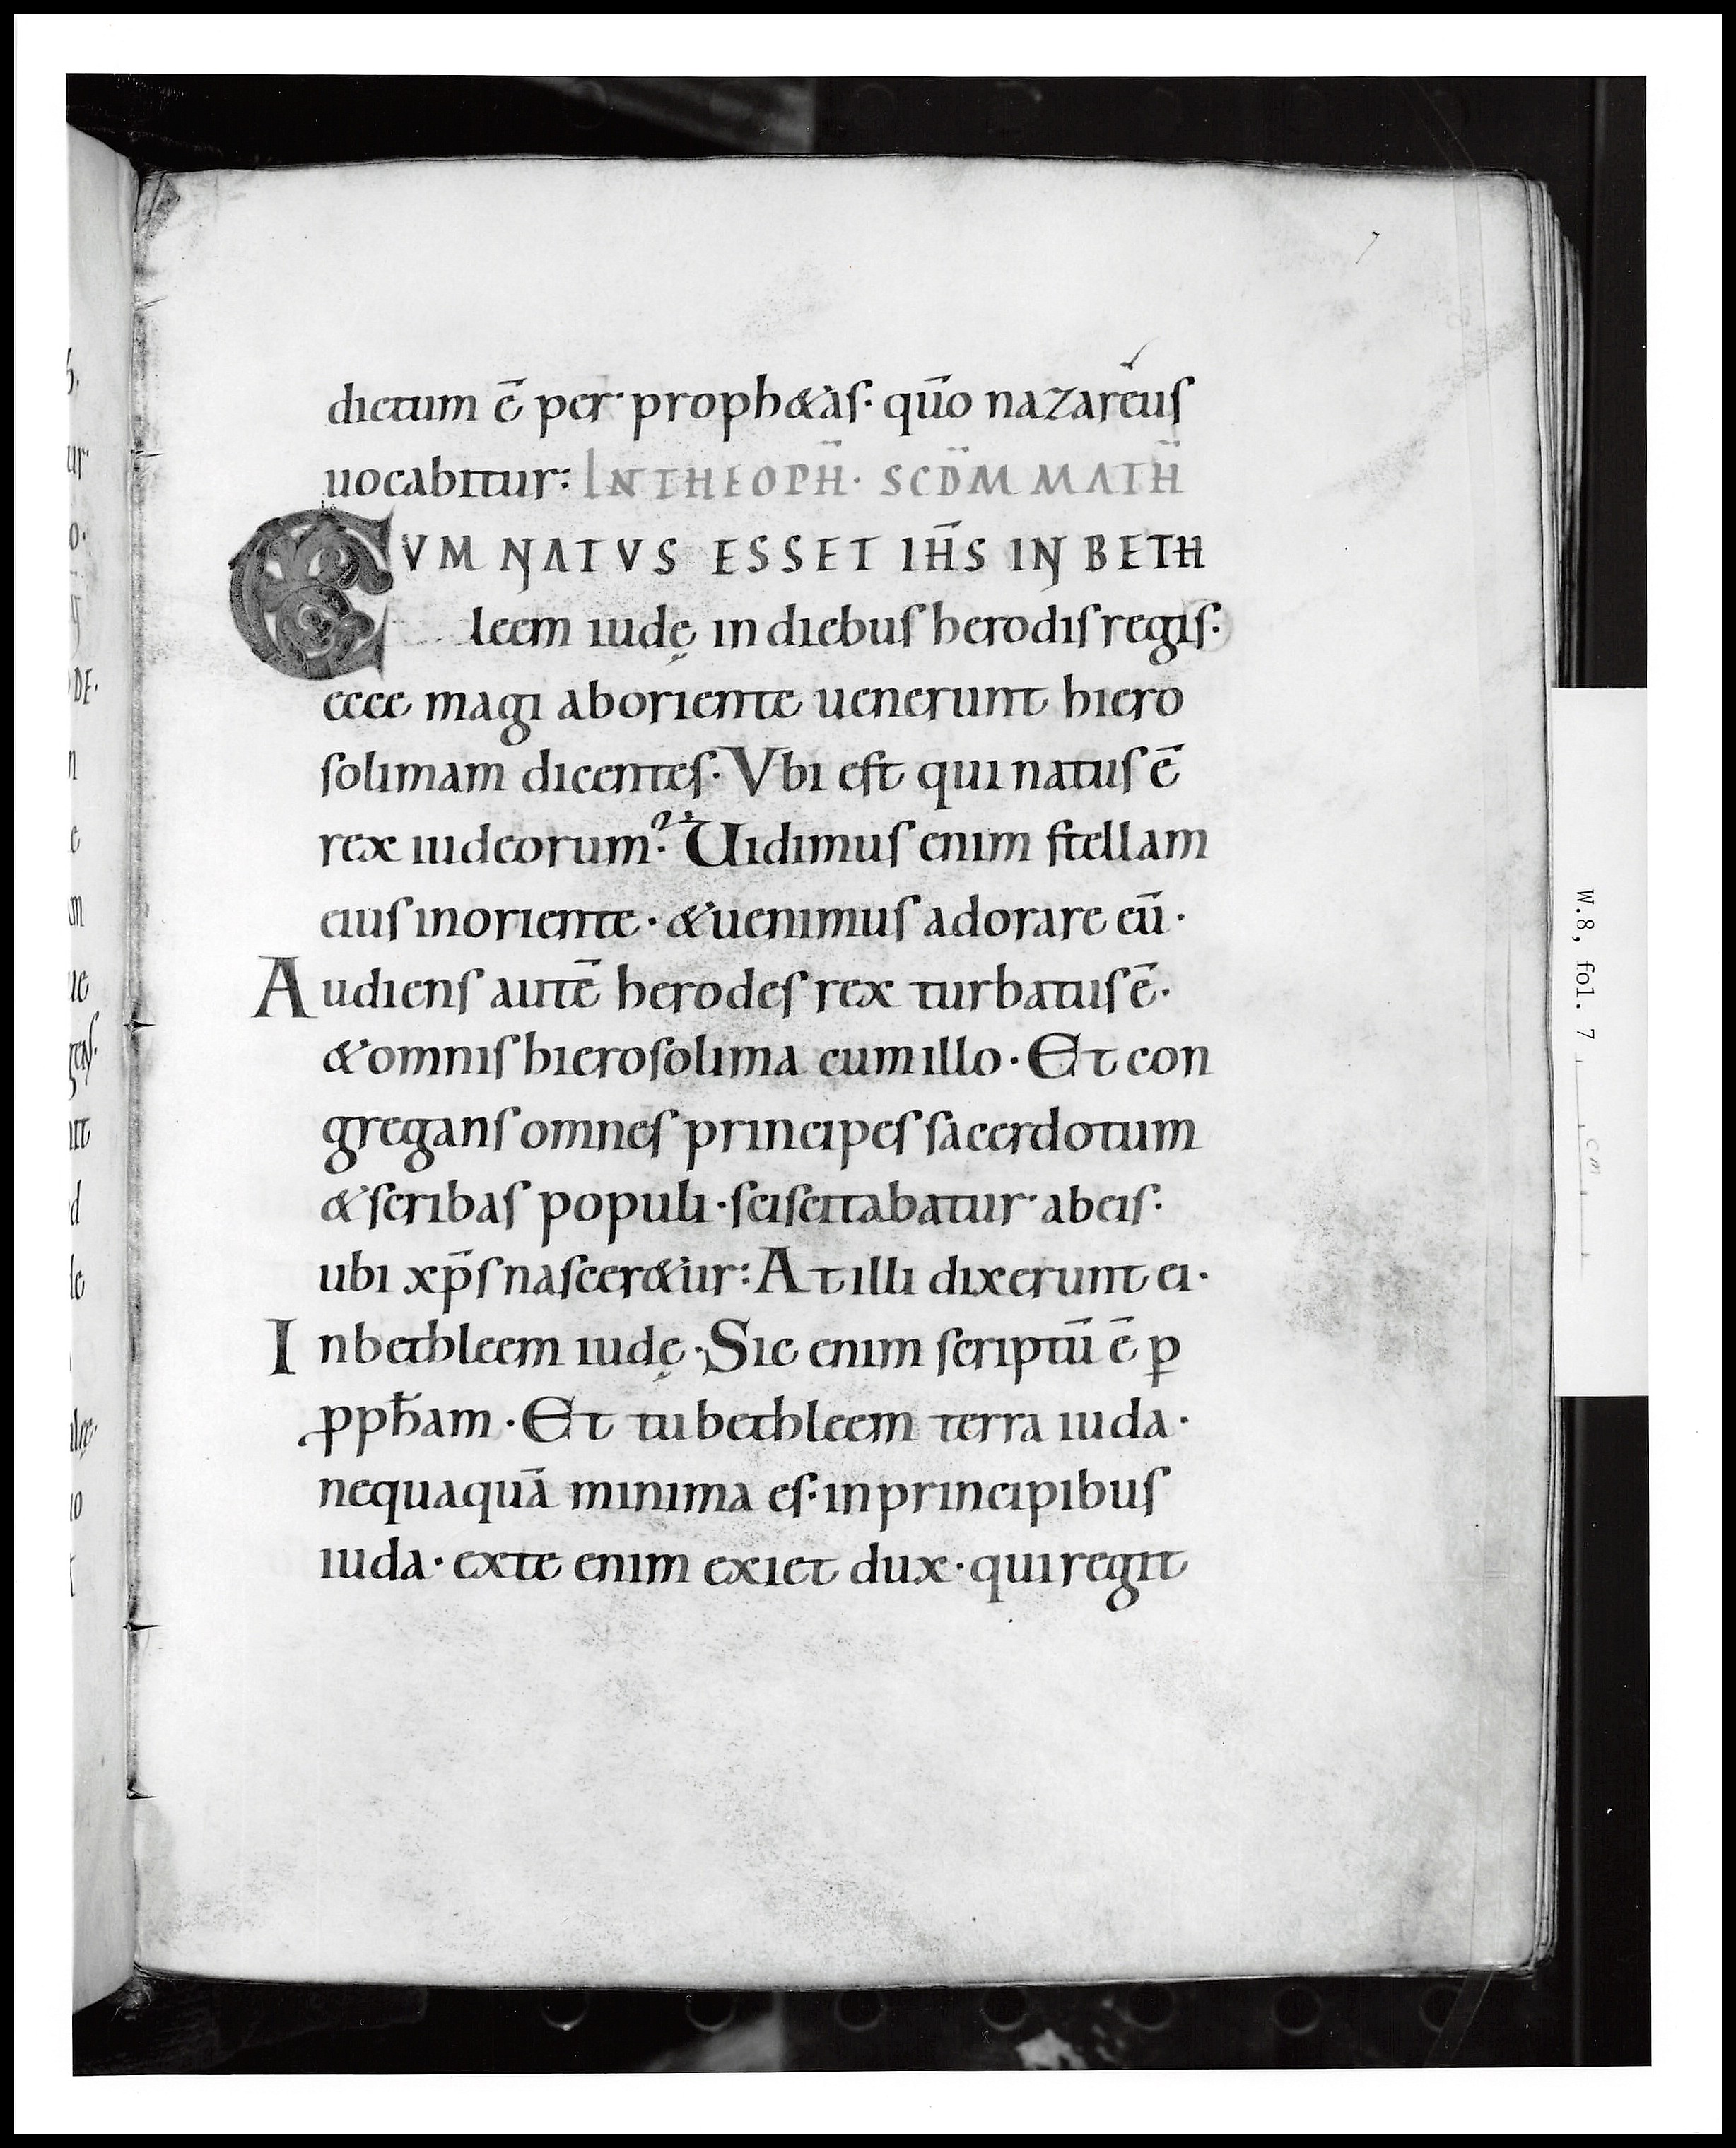 7
dictum ē per proph&as· qūo nazareus
uocabitur: IN THEOPH̄· SCD̄M MATH̄
CVM NATVS ESSET IH̄S IN BETH
leem iudę in diebus herodis regis·
ecce magi aboriente uenerunt hiero
solimam dicentes· Vbi est qui natus ē
rex iudeorum? Uidimus enim stellam
eius inoriente· &uenimus adorare eū·
Audiens autē herodes rex turbatus ē·
&omnis hierosolima cum illo· Et con
gregans omnes principes sacerdotum
&scribas populi· sciscitabatur abeis·
ubi xp̄s nascer&ur: At illi dixerunt ei·
Inbethleem iudę· Sic enim scriptū ē ꝑ
ꝓph̄am· Et tu bethleem terra iuda·
nequaquā minima es· in principibus
iuda· exte enim exiet dux· qui regit
W.8, fol. 7
cm